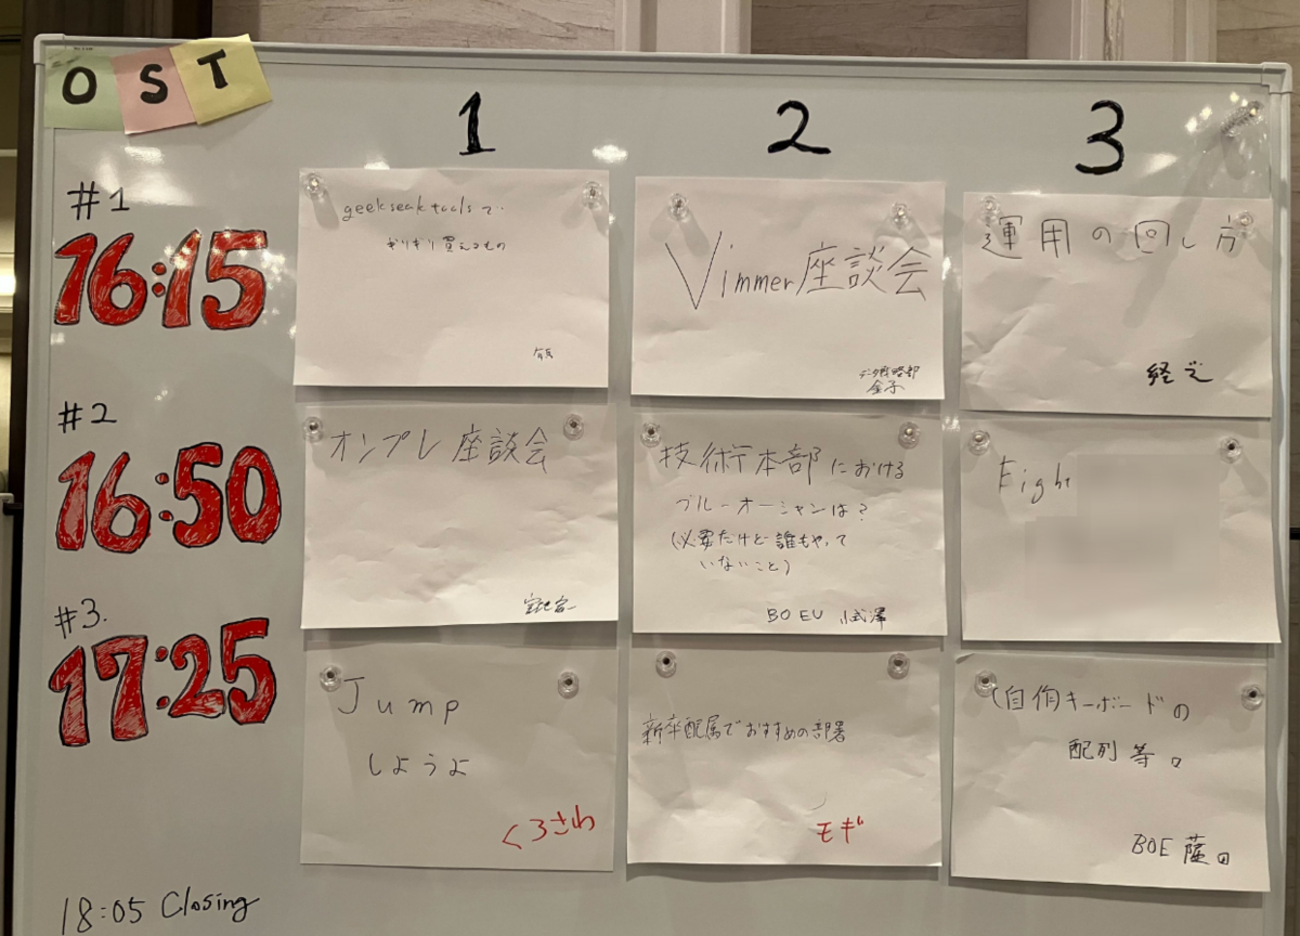 OST
1 2 3
#1
16:15
geekseek toolsで
ギリギリ買えるもの
Vimmer座談会
データ戦略部
金子
運用の回し方
#2
16:50
オンプレ座談会
技術本部における
ブルーオーシャンは？
（必要だけど誰もやって
いないこと）
BO EU 小武澤
Eight
#3.
17:25
Jump
しようよ
くろさわ
新卒配属でおすすめの部署
モギ
自作キーボードの
配列等々
BOE 薩田
18:05 Closing